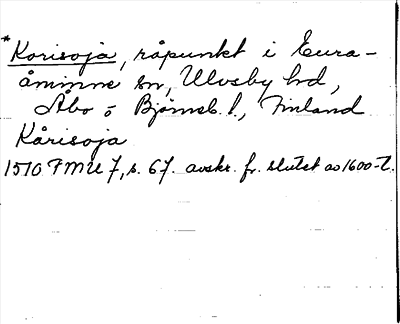 *Korisoja, råpunkt i Eura-
åminne sn, Ulvsby hd,
Åbo o Björneb. l., Finland
Kårisoja
1510 FMU 7, s. 67. avskr. fr. slutet av 1600-t.